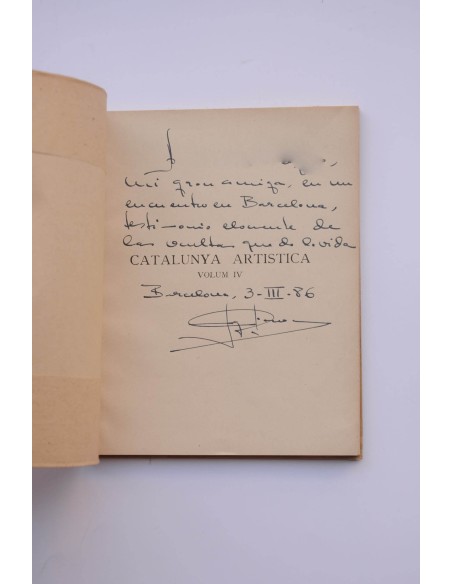 mi gran amiga, en un
encuentro en Barcelona,
testimonio elocuente de
las vueltas que da la vida
CATALUNYA ARTISTICA
VOLUM IV
Barcelona, 3-III-86